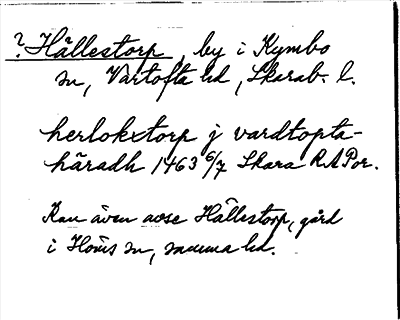 ? Hällestorp, by i Kymbo
sn, Vartofta hd, Skarab. l.
herlokxtorp j vardtopta-
häradh 1463 6/7 Skara RAPor.
Kan även avse Hällestorp, gård
i Hömb sn, samma hd.